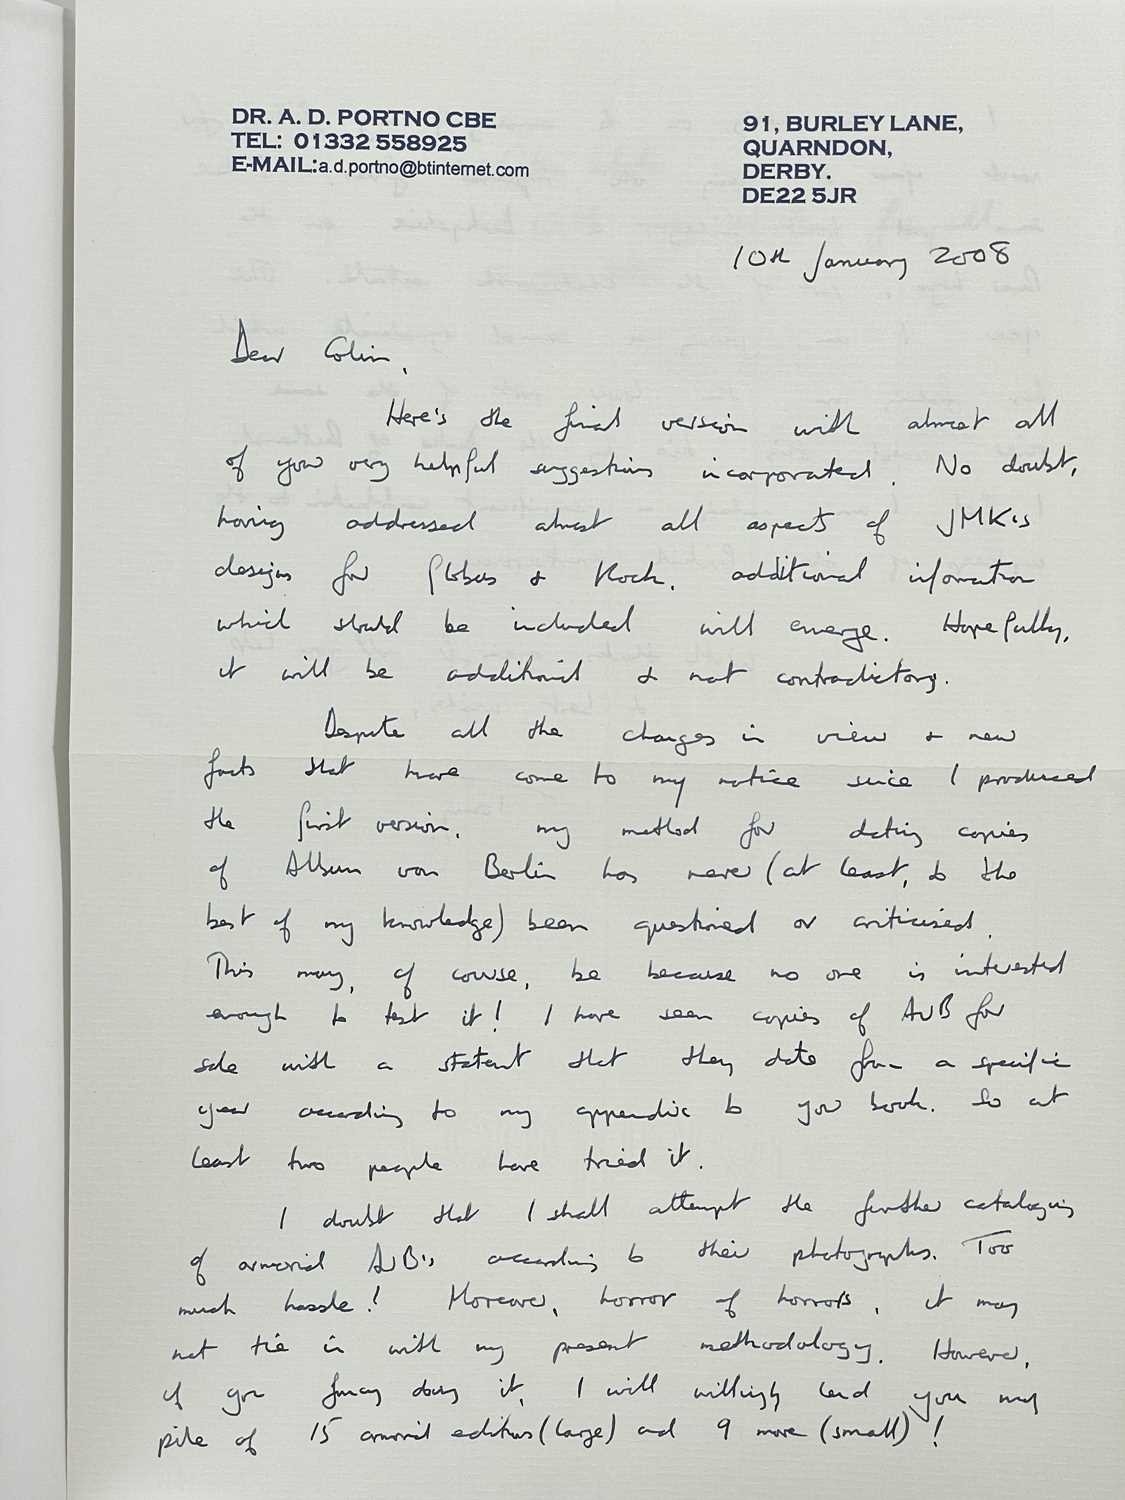 DR. A. D. PORTNO CBE
TEL: 01332 558925
E-MAIL:a.d.portno@btinternet.com
91, BURLEY LANE,
QUARNDON,
DERBY.
DE22 5JR
10th January 2008
Dear Colin,
Here's the final version with almost all
of your very helpful suggestions incorporated. No doubt,
having addressed almost all aspects of JMK's
designs for Globus & Koch, additional information
which should be included will emerge. Hopefully,
it will be additional & not contradictory.
Despite all the changes in view & new
facts that have come to my notice since I produced
the first version, my method for dating copies
of Album von Berlin has never (at least, to the
best of my knowledge) been questioned or criticised.
This may, of course, be because no one is interested
enough to test it! I have seen copies of AvB for
sale with a statent that they date from a specific
year according to my appendix to your book. So at
least two people have tried it.
I doubt that I shall attempt the further cataloguing
of armorial AvB's according to their photographs. Too
much hassle! Moreover, horror of horrors, it may
not tie in with my present methodology. However,
if you fancy doing it, I will willingly lend you my
pile of 15 armorial editions (large) and 9 more (small)!